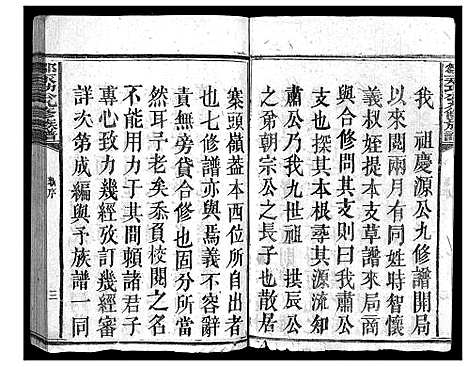 我　祖慶源公九修譜開局
以來閱兩月有同姓時智懷
義权姪提本支草譜來局
與合修問其支則曰我肅公
支也探其本根蓋其示肅公
肅公乃我九世祖　拱辰公
之眉朝宗公之長子也散居
寨頭嶺益本西位所自出者
也七修譜亦與焉義不容辭
責無旁貸合修也固分所當
然耳子老矣忝頁校閱之已
不能用力于其間賴諸君子
專心致力幾經攷訂幾經審
詳次第成編與予族譜一同
三